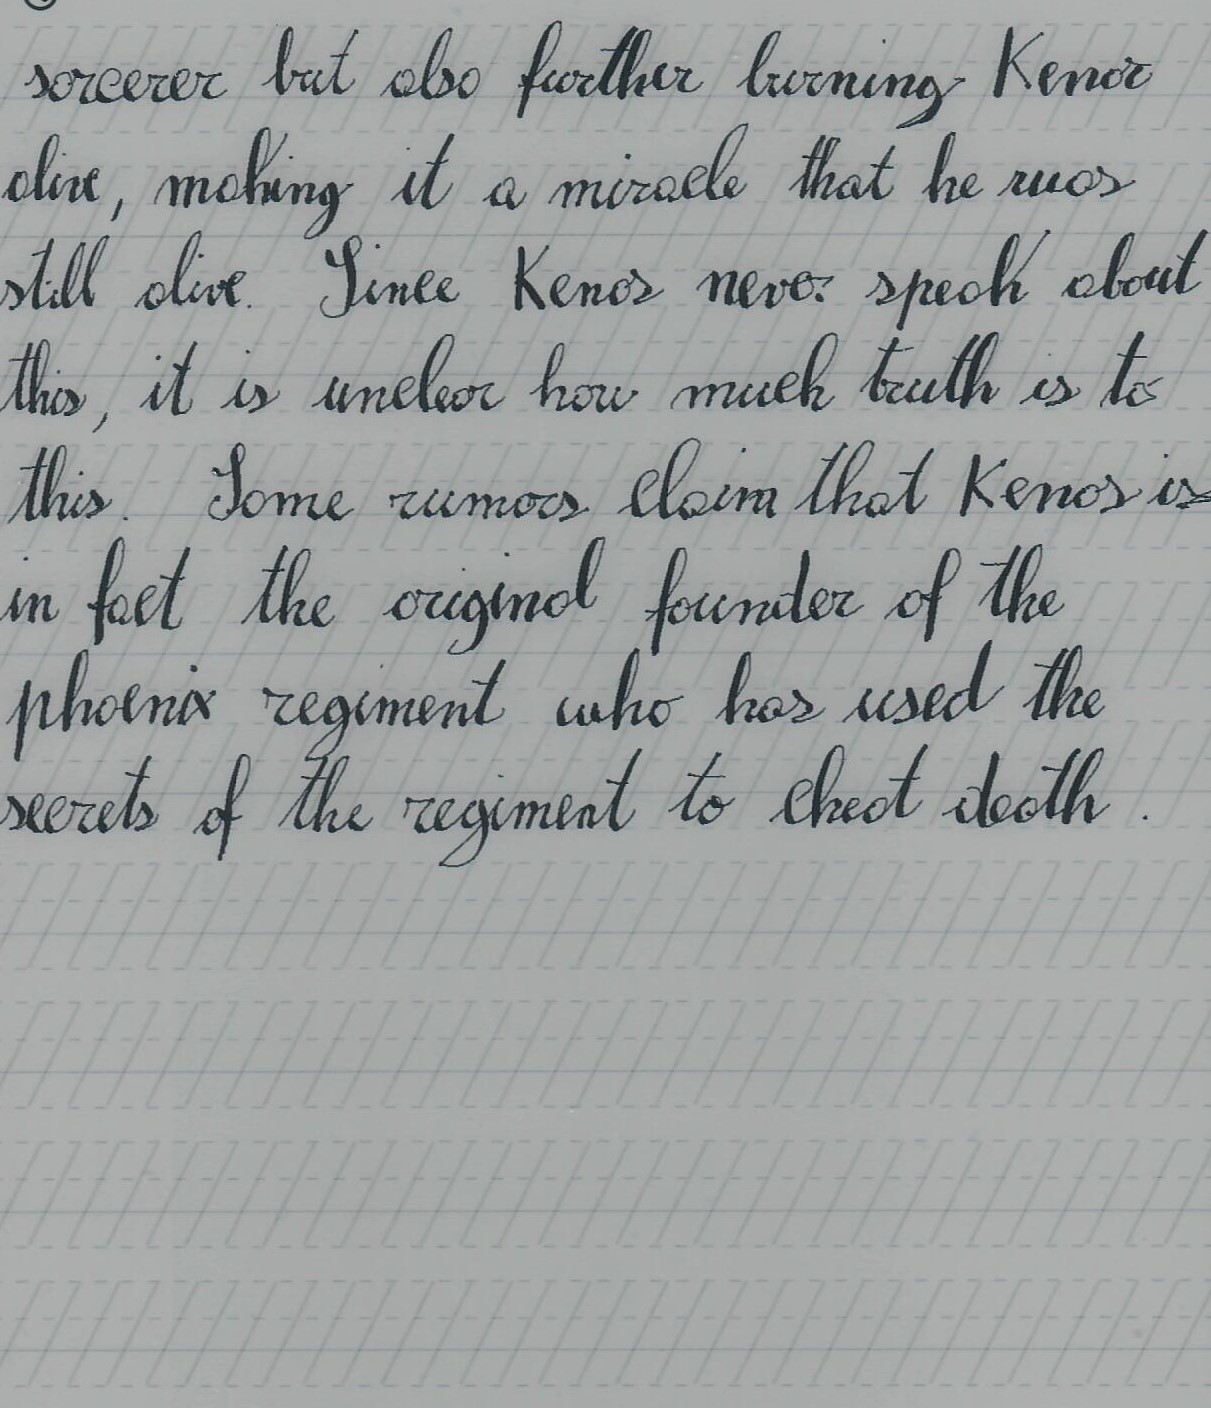 sorcerer but also further burning Kenos
alive, making it a miracle that he was
still alive. Since Kenos never speak about
this, it is unclear how much truth is to
this. Some rumors claim that Kenos is
in fact the original founder of the
phoenix regiment who has used the
secrets of the regiment to cheat death.